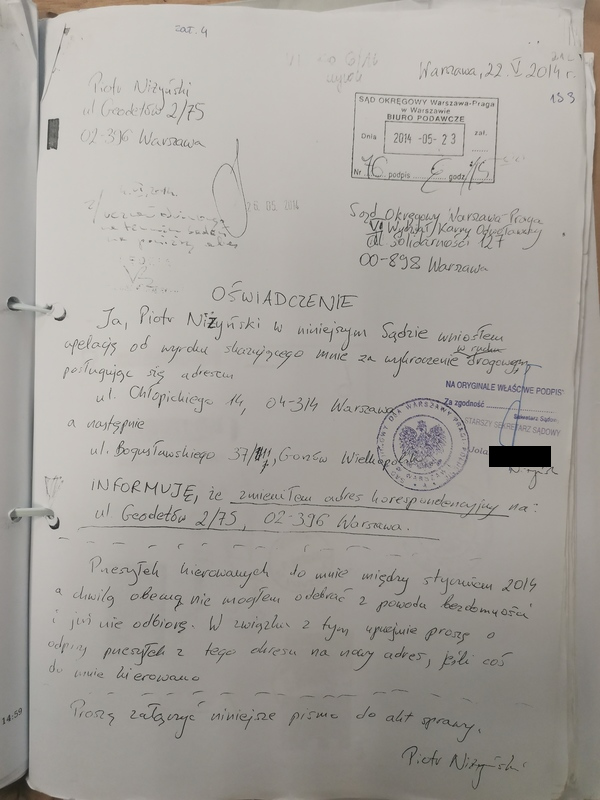 zał. 4
Warszawa, 22. V 2014 r.
133
Piotr Niżyński
ul Geodetów 2/75
02-396 Warszawa
SĄD OKRĘGOWY Warszawa-Praga
w Warszawie
BIURO PODAWCZE
Dnia 2014 -05- 23 zał.
Nr 76 podpis godz.
26.05.2014
Sąd Okręgowy Warszawa Praga
VI Wydział Karny Odwoławczy
al Solidarności 127
00-898 Warszawa
OŚWIADCZENIE
Ja, Piotr Niżyński w niniejszym Sądzie wniosłem
apelację od wyroku skazującego mnie za wykroczenie drogowe,
posługując się adresem
ul. Chłopickiego 14, 04-314 Warszawa
NA ORYGINALE WŁAŚCIWE PODPISY
Za zgodność
Sekretarz Sądowy
STARSZY SEKRETARZ SĄDOWY
a następnie
Jola
ul. Bogusławskiego 37/7, Gorzów Wielkopolski
INFORMUJĘ, że zmieniłem adres korespondencyjny na:
ul Geodetów 2/75, 02-396 Warszawa.
Przesyłek kierowanych do mnie między styczniem 2014
a chwilą obecną nie mogłem odebrać z powodu bezdomności
i już nie odbiorę. W związku z tym uprzejmie proszę o
odpisy przesyłek z tego okresu na nowy adres, jeśli coś
do mnie kierowano
14:59
Proszę załączyć niniejsze pismo do akt sprawy.
Piotr Niżyński